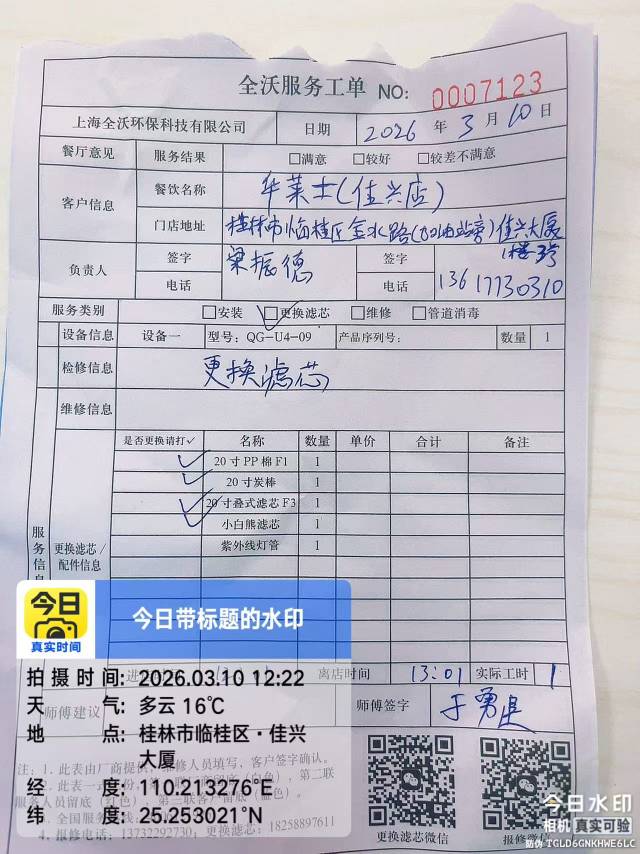 全沃服务工单 NO: 0007123
上海全沃环保科技有限公司 日期 2026 年 3 月 10 日
餐厅意见 服务结果 □满意 □较好 □较差不满意
客户信息 餐饮名称 华莱士(佳兴店)
门店地址 桂林市临桂区金水路(加油站旁)佳兴大厦
1楼
负责人 签字 梁振德 签字
电话 电话 13617730310
服务类别 □安装 ☑更换滤芯 □维修 □管道消毒
设备信息 设备一 型号: QG-U4-09 产品序列号: 数量 1
检修信息 更换滤芯
维修信息
是否更换请打✓ 名称 数量 单价 合计 备注
✓ 20寸PP棉F1 1
✓ 20寸炭棒 1
✓ 20寸叠式滤芯F3 1
小白熊滤芯 1
紫外线灯管 1
服务信息
更换滤芯/
配件信息
离店时间 13:01 实际工时 1
师傅建议 师傅签字
注: 1. 此表由厂商提供, 维修人员填写, 客户签字确认。
服务人员留底(红色), 第三联客户留底(蓝色)。
4. 报修电话: 13732292730; 更换滤芯: 18258897611
更换滤芯微信 报修微信
今日
真实时间
今日带标题的水印
拍摄时间: 2026.03.10 12:22
天气: 多云 16℃
地点: 桂林市临桂区·佳兴
大厦
经度: 110.213276°E
纬度: 25.253021°N
今日水印
相机 真实可验
防伪 TGLD6GNKHWE6LC